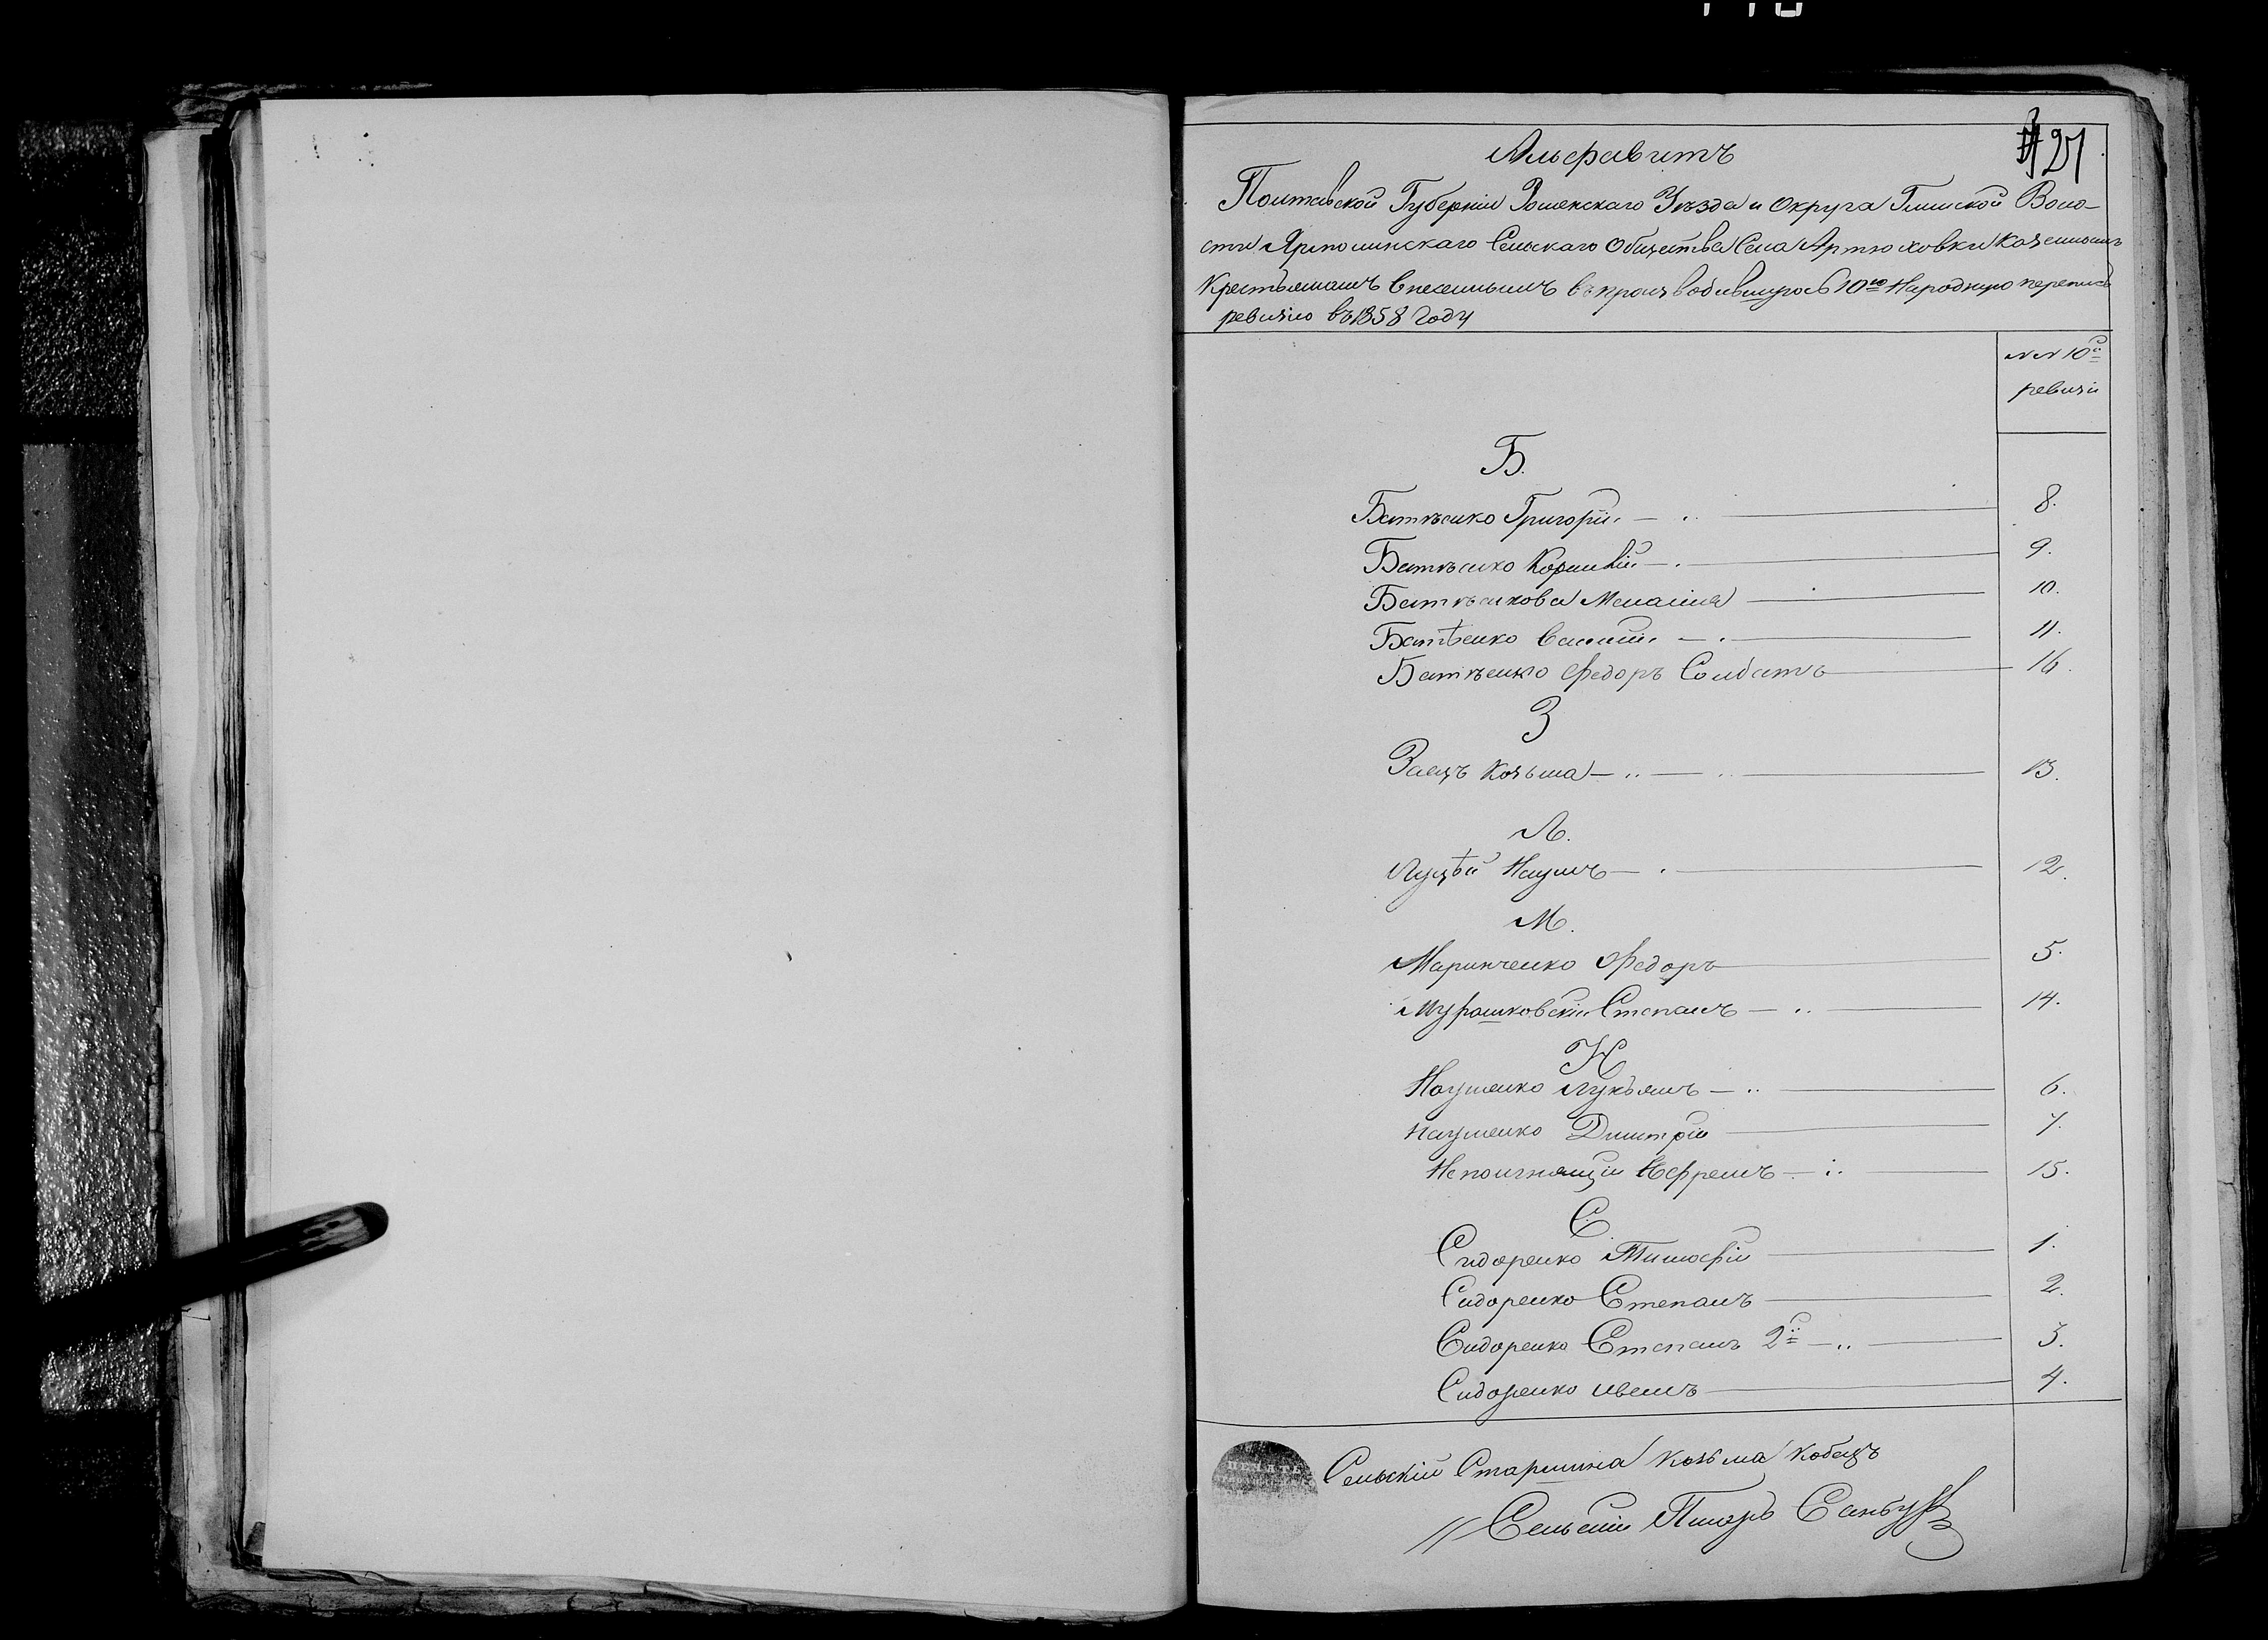 Альфавитъ
Полтавской Губерніи Роменскаго Уѣзда и Округа Глинской Воло-
сти Ярмолинскаго Сельскаго Общества Села Артюховки Казеннымъ
Крестьянамъ внесеннымъ въ производившуюсь 10ю Народную перепись
ревизію въ 1858 Году
№№ 10й
ревизіи
Б.
Батѣенко Григорій 8.
Батѣенко Корнилій 9.
Батѣенкова Меланія 10.
Батѣенко Василій 11.
Батѣенко Федоръ Солдатъ 16.
З
Заецъ Козьма 13.
Л.
Луцѣй Наумъ 12.
М.
Маринченко Федоръ 5.
Мурашковскій Степанъ 14.
Н
Науменко Лукьянъ 6.
Науменко Дмитрій 7.
Непомнящій Ефремъ 15.
С.
Сидоренко Тимофій 1.
Сидоренко Степанъ 2.
Сидоренко Степанъ 2й 3.
Сидоренко Иванъ 4.
Сельскій Старшина Козьма Кобецъ
Сельскій Писарь